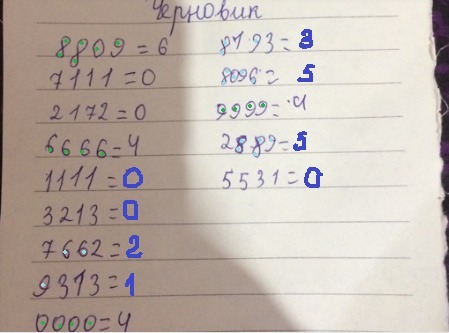 Черновик
8809=6
7111=0
2172=0
6666=4
1111=0
3213=0
7662=2
9313=1
0000=4
8193=3
8096=5
9999=4
2889=5
5531=0